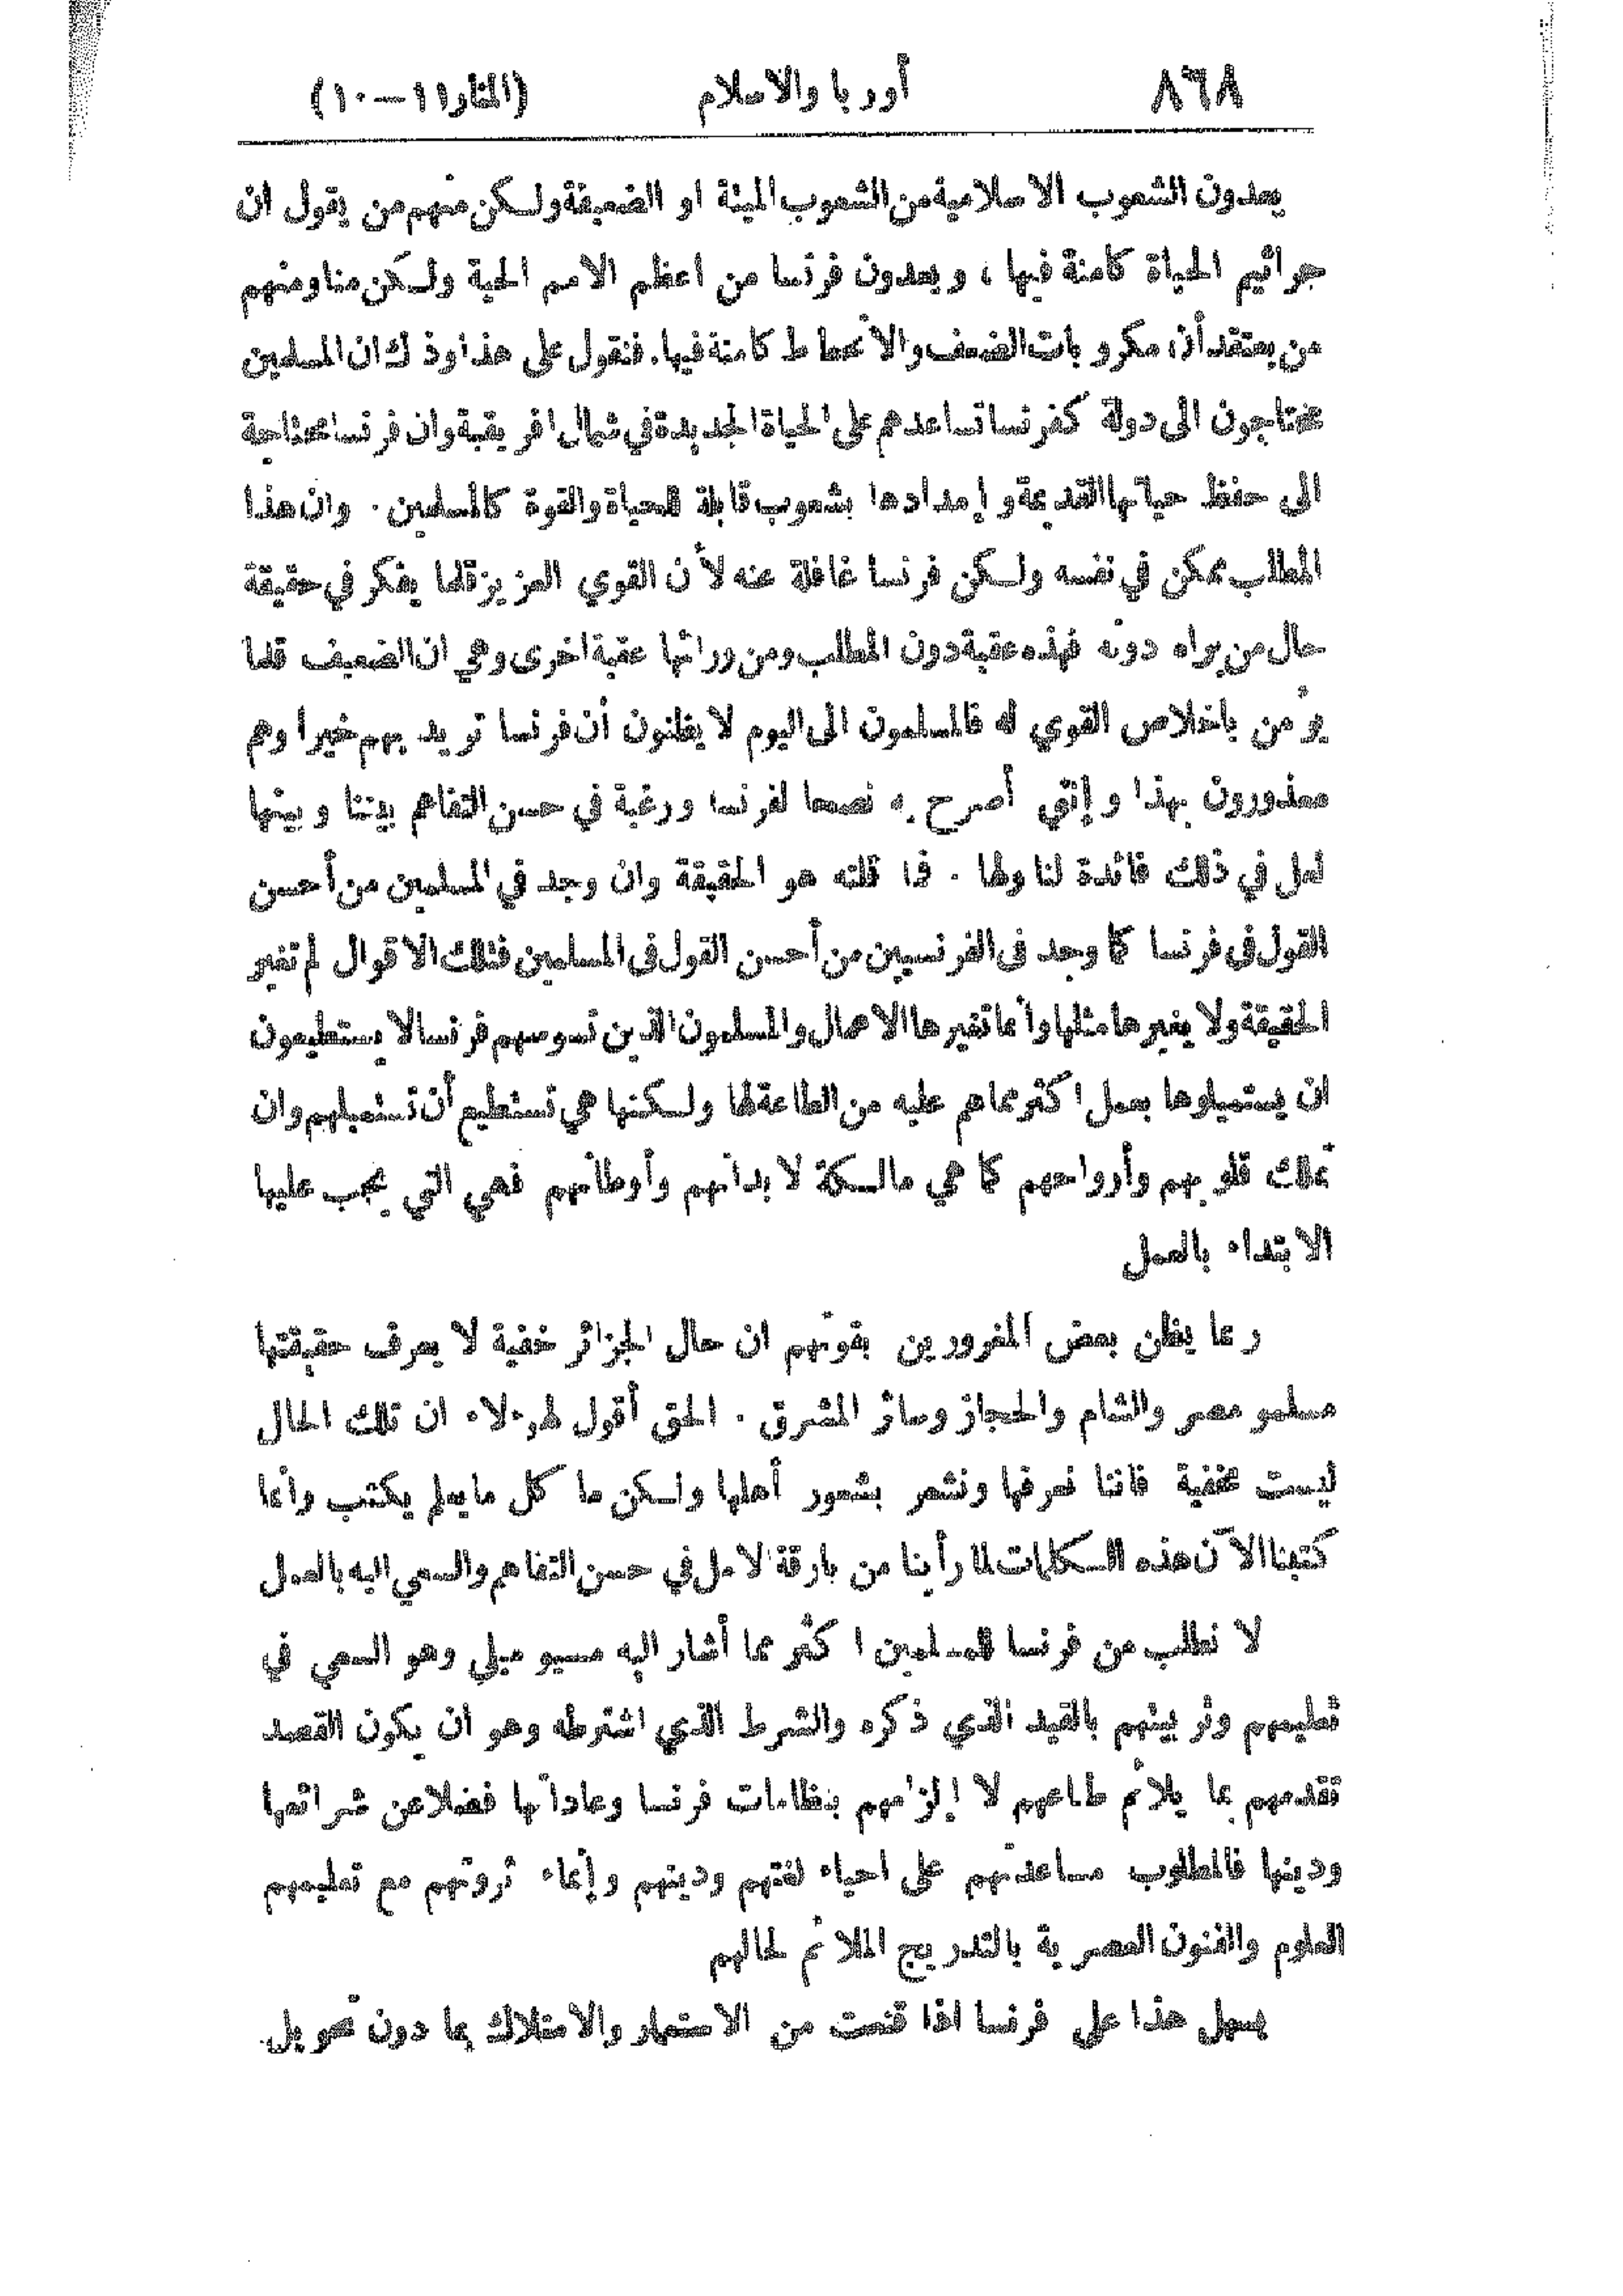 ٨٦٨ أوربا والاسلام (المنار ١١ – ١٠)
يعدون الشعوب الاسلامية من الشعوب الميتة او الضعيفة ولكن منهم من يقول ان
جراثيم الحياة كامنة فيها ، ويعدون فرنسا من اعظم الامم الحية ولكن منا ومنهم
من يعتقد أن مكروبات الضعف والانحطاط كامنة فيها. فنقول على هذا وذلك ان المسلمين
محتاجون الى دولة كفرنسا تساعدهم على الحياة الجديدة في شمال افريقية وان فرنسا محتاجة
الى حفظ حياتها القديمة وإمدادها بشعوب قابلة للحياة والقوة كالمسلمين . وان هذا
المطلب ممكن في نفسه ولكن فرنسا غافلة عنه لأن القوي العزيز قلما يفكر في حقيقة
حال من يراه دونه فهذه عقبة دون المطلب ومن ورائها عقبة اخرى وهي ان الضعيف قلما
يؤمن باخلاص القوي له فالمسلمون الى اليوم لا يظنون أن فرنسا تريد بهم خيرا وهم
معذورون بهذا وإنني أصرح به نصحا لفرنسا ورغبة في حسن التفاهم بيننا وبينها
لعل في ذلك فائدة لنا ولها . فما قلته هو الحقيقة وان وجد في المسلمين من أحسن
القول في فرنسا كما وجد في الفرنسيين من أحسن القول في المسلمين فتلك الاقوال لم تغير
الحقيقة ولا يغيرها مثلها وانما تغيرها الاعمال والمسلمون الذين تسوسهم فرنسا لا يستطيعون
ان يستميلوها بعمل اكثر مما هم عليه من الطاعة لها ولكنها هي تستطيع أن تستميلهم وان
تملك قلوبهم وأرواحهم كما هي مالكة لابدانهم وأوطانهم فهي التي يجب عليها
الابتداء بالعمل
ربما يظن بعض المغرورين بقوتهم ان حال الجزائر خفية لا يعرف حقيقتها
مسلمو مصر والشام والحجاز وسائر المشرق . الحق أقول لهؤلاء ان تلك الحال
ليست بخفية فاننا نعرفها ونشعر بشعور أهلها ولكن ما كل ما يعلم يكتب وانما
كتبنا الآن هذه الكلمات لما رأينا من بارقة الامل في حسن التفاهم والسعي اليه بالعمل
لا نطلب من فرنسا للمسلمين اكثر مما أشار اليه مسيو ميلي وهو السعي في
تعليمهم وتربيتهم بالقيد الذي ذكره والشرط الذي اشترطه وهو ان يكون القصد
تقدمهم بما يلائم طباعهم لا إلزامهم بنظامات فرنسا وعاداتها فضلا عن شرائعها
ودينها فالمطلوب مساعدتهم على احياء لغتهم ودينهم وإنماء ثروتهم مع تعليمهم
العلوم والفنون العصرية بالتدريج الملائم لحالهم
يسهل هذا على فرنسا اذا قنعت من الاستعمار والامتلاك بما دون تحويل